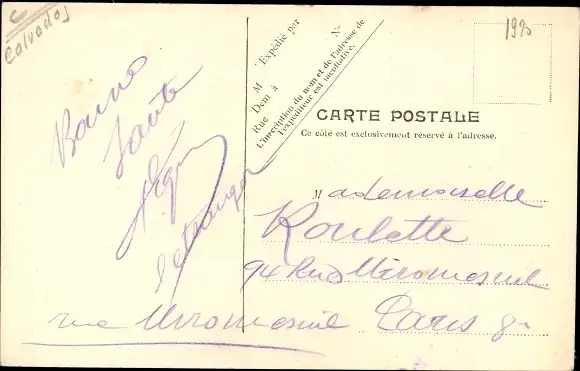 Calvados
1920
M Expédié par
Demt à
Rue Nº
L'inscription du nom et de l'adresse de
l'expéditeur est facultative.
CARTE POSTALE
Ce côté est exclusivement réservé à l'adresse.
Bonne
Santé
Mademoiselle
Roulette
94 Rue Miromesnil
Paris 8e
rue Miromesnil